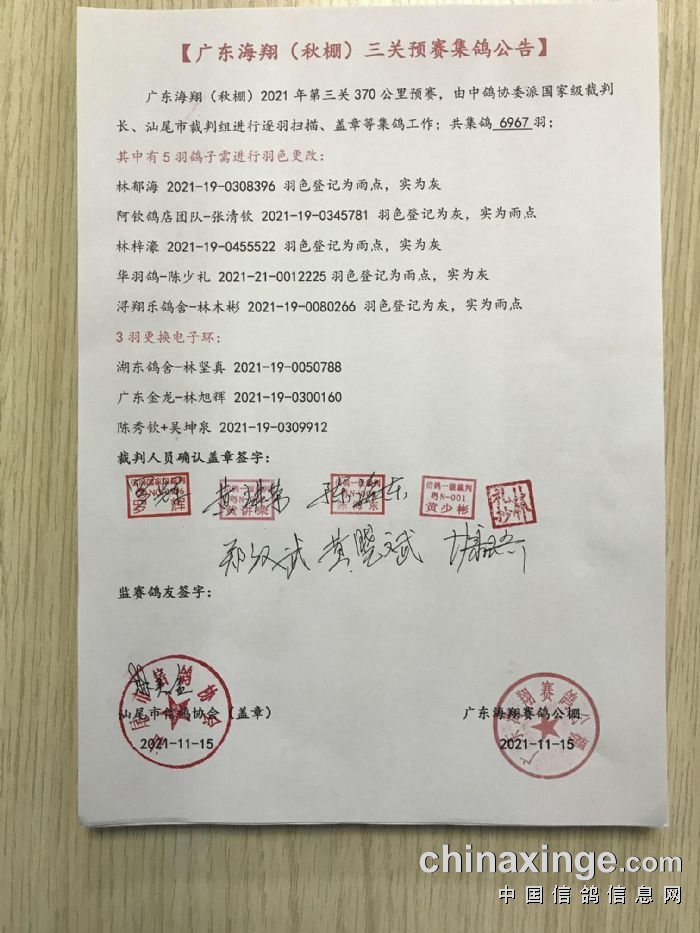 【广东海翔（秋棚）三关预赛集鸽公告】
广东海翔（秋棚）2021年第三关370公里预赛，由中鸽协委派国家级裁判
长、汕尾市裁判组进行逐羽扫描、盖章等集鸽工作；共集鸽 6967 羽；
其中有5羽鸽子需进行羽色更改：
林郁海 2021-19-0308396 羽色登记为雨点，实为灰
阿钦鸽店团队-张清钦 2021-19-0345781 羽色登记为灰，实为雨点
林梓濠 2021-19-0455522 羽色登记为雨点，实为灰
华羽鸽-陈少礼 2021-21-0012225羽色登记为雨点，实为灰
浔翔乐鸽舍-林木彬 2021-19-0080266 羽色登记为灰，实为雨点
3羽更换电子环：
湖东鸽舍-林坚真 2021-19-0050788
广东金龙-林旭辉 2021-19-0300160
陈秀钦+吴坤泉 2021-19-0309912
裁判人员确认盖章签字：
信鸽一级裁判
粤N-001
黄少彬
监赛鸽友签字：
汕尾市信鸽协会（盖章）
2021-11-15
广东海翔赛鸽公棚
2021-11-15
chinaxinge.com
中国信鸽信息网